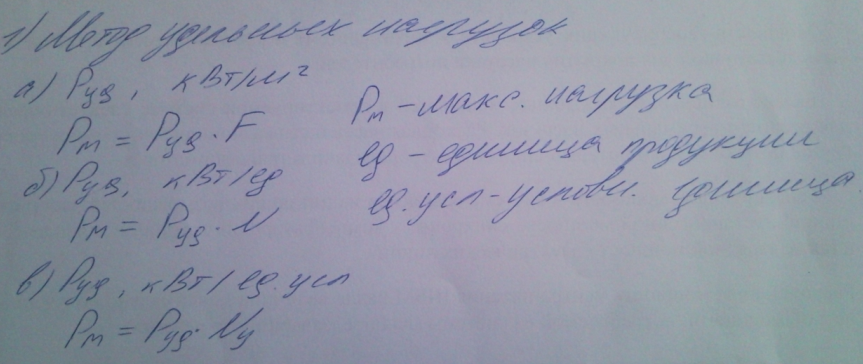 1) Метод удельных нагрузок
а) Pуд, кВт/м²
Pм = Pуд · F
б) Pуд, кВт/ед
Pм = Pуд · N
в) Pуд, кВт/ед.усл
Pм = Pуд · Nу
Pм - макс. нагрузка
ед - единица продукции
ед.усл - условн. единица